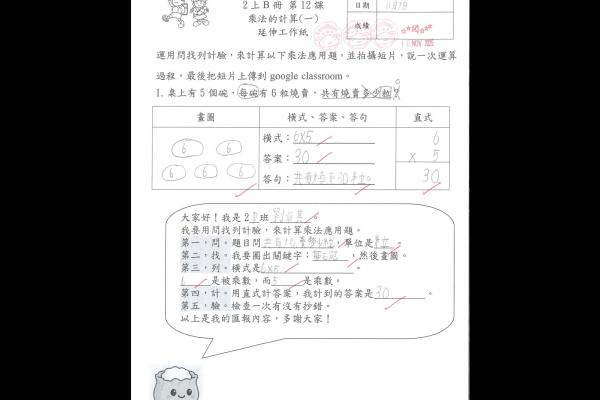 2上B冊 第12課
日期 11月7日
乘法的計算(一)
成績
延伸工作紙
11 NOV 2025
運用問找列計驗，來計算以下乘法應用題，並拍攝短片，說一次運算
過程，最後把短片上傳到 google classroom。
1. 桌上有5個碗，每碗有6粒燒賣，共有燒賣多少粒？
畫圖 橫式、答案、答句 直式
6 6
6 6 6
橫式：6x5
答案：30
答句：共有30粒。
6
x 5
30
大家好！我是2D班
我要用問找列計驗，來計算乘法應用題。
第一，問。題目問共有燒賣多少粒，單位是粒。
第二，找。我要圈出關鍵字：每碗，然後畫圖。
第三，列。橫式是6x5。
6是被乘數，而5是乘數。
第四，計。用直式計答案，我計到的答案是30。
第五，驗。檢查一次有沒有抄錯。
以上是我的匯報內容，多謝大家！